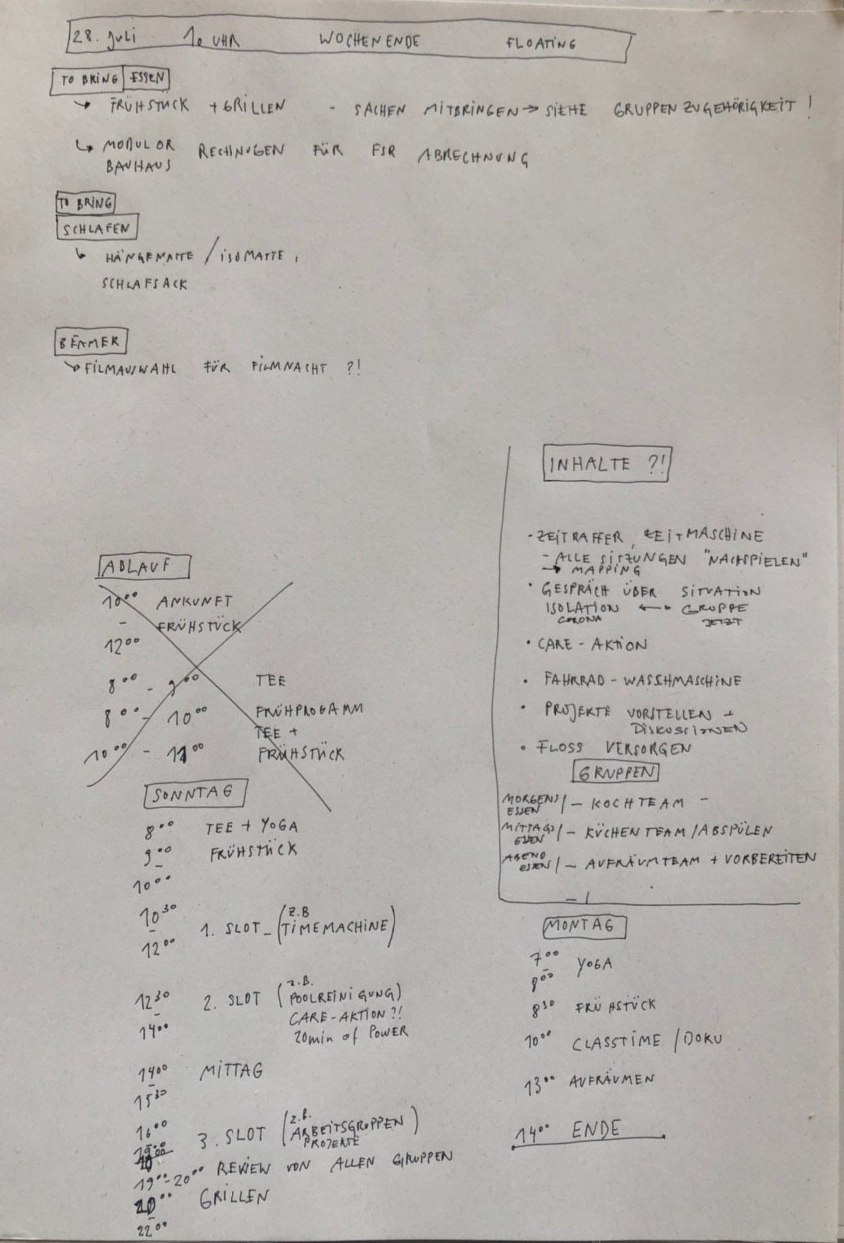 28. Juli 10 UHR WOCHENENDE FLOATING
TO BRING ESSEN
↳ FRÜHSTÜCK + GRILLEN - SACHEN MITBRINGEN → SIEHE GRUPPENZUGEHÖRIGKEIT!
↳ MODULOR RECHNUGEN FÜR FSR ABRECHNUNG
BAUHAUS
TO BRING
SCHLAFEN
↳ HÄNGEMATTE / ISOMATTE,
SCHLAFSACK
↳ FILMAUSWAHL FÜR FILMNACHT ?!
ABLAUF
10°° ANKUNFT
- FRÜHSTÜCK
12°°
8°° - 9°° TEE
8°° - 10°° FRÜHPROGAMM
TEE +
10°° - 11°° FRÜHSTÜCK
SONNTAG
8°° TEE + YOGA
9°° FRÜHSTÜCK
-
10°°
10³⁰
- 1. SLOT - (Z.B TIMEMACHINE)
12°°
12³⁰ 2. SLOT (z.B. POOLREINIGUNG)
- CARE-AKTION?!
14°° 20min of POWER
14°° MITTAG
-
15³⁰
16°° 3. SLOT (z.B. ARBEITSGRUPPEN)
- PROJEKTE
19°°
19°°-20°° REVIEW VON ALLEN GRUPPEN
20°° GRILLEN
-
22°°
INHALTE ?!
- ZEITRAFFER, ZEITMASCHINE
- ALLE SITZUNGEN "NACHSPIELEN"
→ MAPPING
• GESPRÄCH ÜBER SITUATION
ISOLATION ←→ GRUPPE
CORONA JETZT
• CARE - AKTION
• FAHRRAD - WASSHMASCHINE
• PROJEKTE VORSTELLEN +
DISKUSSIONEN
• FLOSS VERSORGEN
GRUPPEN
MORGENS ESSEN / - KOCHTEAM -
MITTAGS ESSEN / - KÜCHENTEAM / ABSPÜLEN
ABEND ESSEN / - AUFRÄUMTEAM + VORBEREITEN
MONTAG
7°°
- YOGA
8°°
8³⁰ FRÜHSTÜCK
10°° CLASSTIME / DOKU
13°° AUFRÄUMEN
14°° ENDE